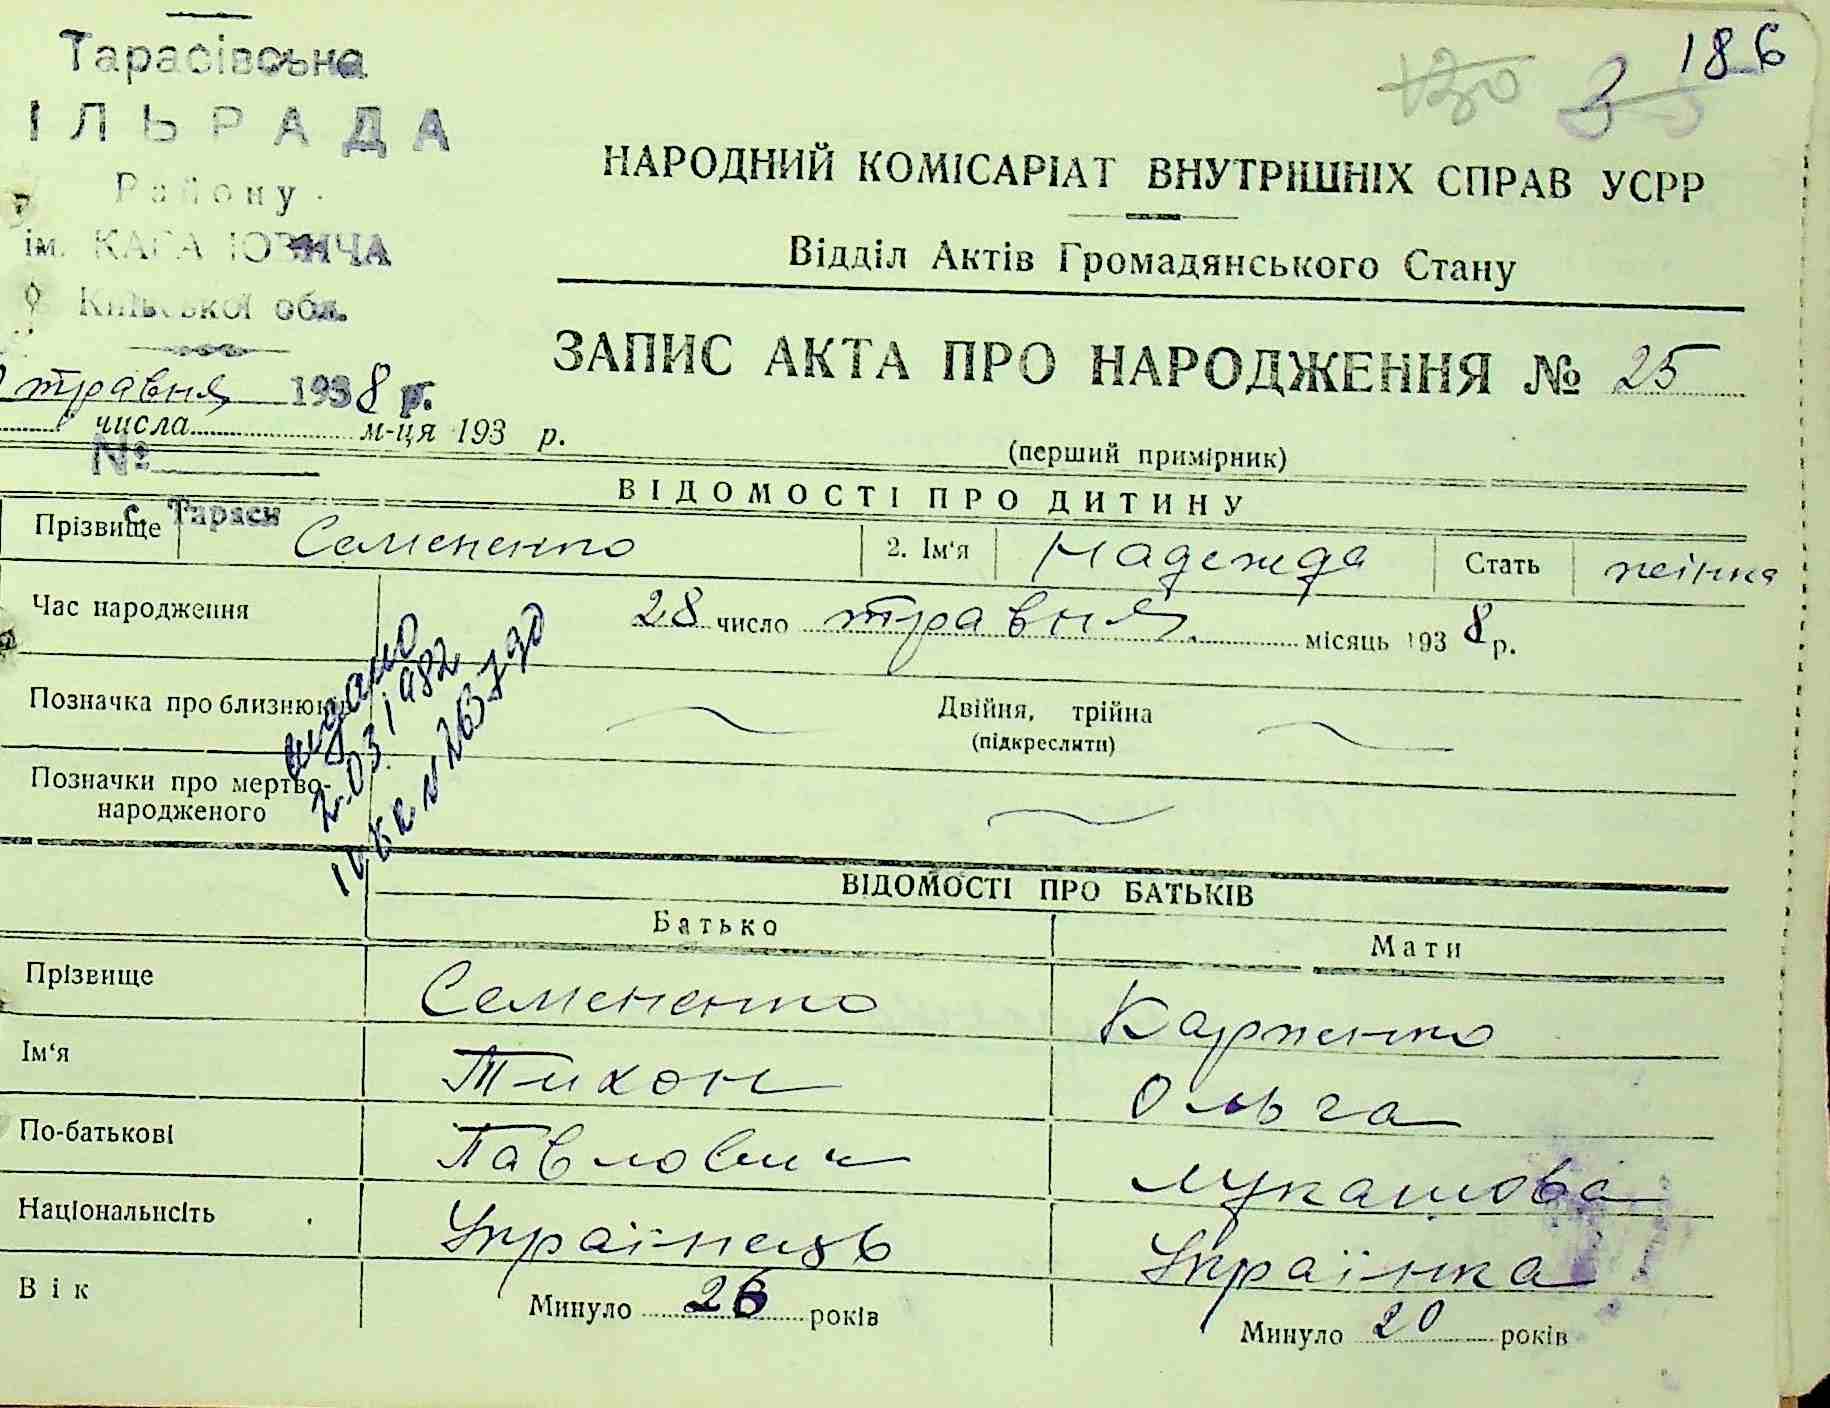 186
Тарасівська
ІЛЬРАДА
Району
ім. КАГА ОВИЧА
Київської обл.
травня 1938 р.
числа м-ця 193 р.
№
с. Тараси
НАРОДНИЙ КОМІСАРІАТ ВНУТРІШНІХ СПРАВ УСРР
Відділ Актів Громадянського Стану
ЗАПИС АКТА ПРО НАРОДЖЕННЯ № 25
(перший примірник)
ВІДОМОСТІ ПРО ДИТИНУ
Прізвище Семененко 2. Ім'я Надежда Стать жінка
Час народження 28 число травня місяць 1938 р.
Позначка про близнюків Двійня, трійна
(підкреслити)
Позначки про мертво-
народженого
видано
2.03.1982
№ 263730
ВІДОМОСТІ ПРО БАТЬКІВ
Батько Мати
Прізвище Семененко Карпенко
Ім'я Тихон Ольга
По-батькові Павлович Лукашова
Національність Українець Українка
Вік Минуло 26 років Минуло 20 років